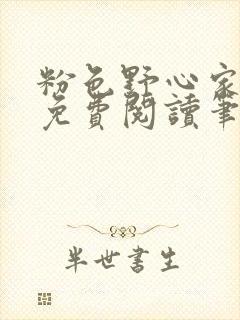 粉色野心家
免費閱讀筆
半世書生